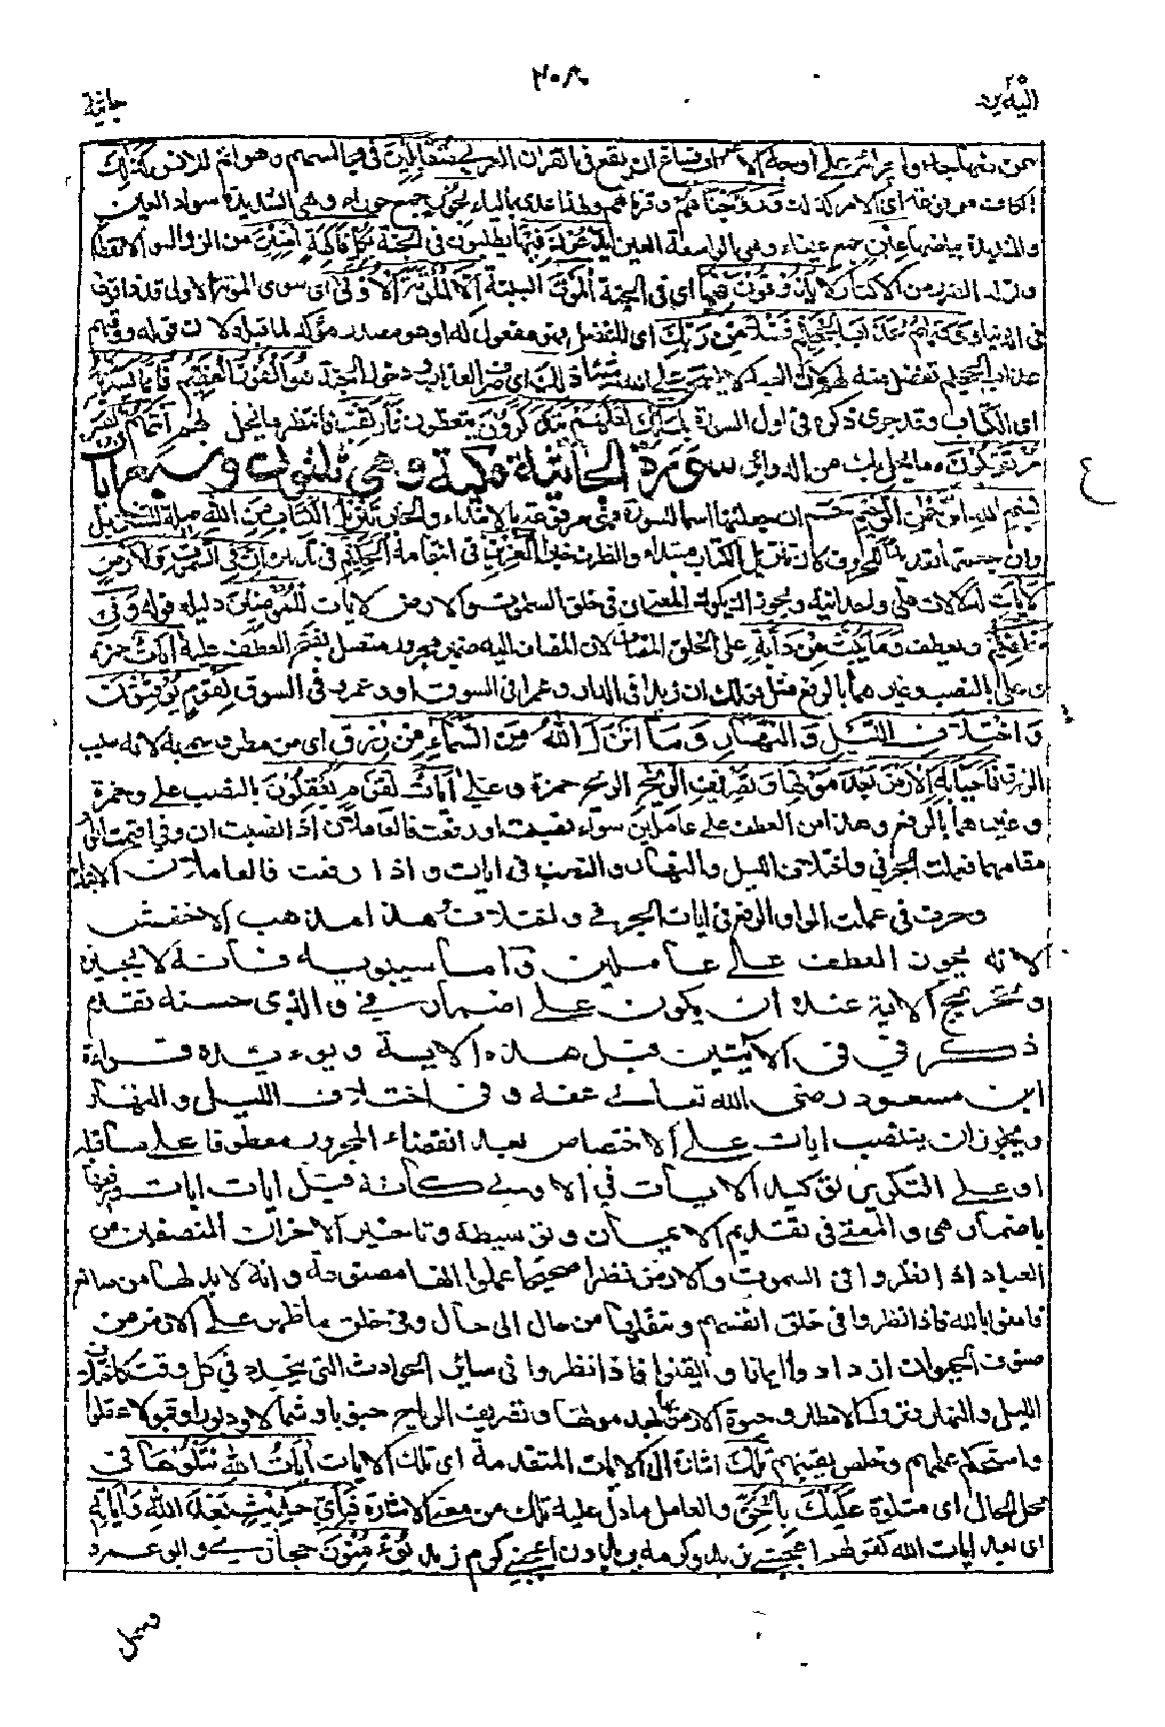 ٢٠٨
٢٥
اليه يرد
جاثية
اوجه الاعراب ساغ ان يقع فى القران العربى مُتَقَابِلِينَ فى مجالسهم وهو اتم للانس كَذَلِكَ
الكاف مرفوعة اى الامر كذلك وَزَوَّجْنَاهُمْ وقرناهم ولهذا عدى بالباء بِحُورٍ جمع حوراء وهى الشديدة سواد العين
والشديدة بياضها عِينٍ جمع عيناء وهى الواسعة العين يَدْعُونَ فِيهَا يطلبون فى الجنة بِكُلِّ فَاكِهَةٍ آمِنِينَ من الزوال والانقطاع
وتولد الضرر من الاكثار لَا يَذُوقُونَ فِيهَا اى فى الجنة الْمَوْتَ البتة إِلَّا الْمَوْتَةَ الْأُولَى اى سوى الموتة الاولى التى ذاقوها
فى الدنيا وَوَقَاهُمْ عَذَابَ الْجَحِيمِ فَضْلًا مِنْ رَبِّكَ اى للفضل فهو مفعول له او هو مصدر مؤكد لما قبله لان قوله ووقاهم
عذاب الجحيم تفضل منه لهم لان العبد لا يستحق على الله شيئا ذَلِكَ اى صرف العذاب ودخول الجنة هُوَ الْفَوْزُ الْعَظِيمُ فَإِنَّمَا يَسَّرْنَاهُ
اى الكتاب وقد جرى ذكره فى اول السورة بِلِسَانِكَ لَعَلَّهُمْ يَتَذَكَّرُونَ يتعظون فَارْتَقِبْ فانتظر ما يحل بهم إِنَّهُمْ
مُرْتَقِبُونَ ما يحل بك من الدوائر سورة الجاثية مكية وهى ثلثون وسبع ايات
بِسْمِ اللهِ الرَّحْمَنِ الرَّحِيمِ حم ان جعلتها اسما للسورة فهى مرفوعة بالابتداء والخبر تَنْزِيلُ الْكِتَابِ مِنَ اللهِ صلة للتنزيل
وان جعلتها تعديدا للحروف كان تنزيل الكتاب مبتداء والظرف خبرا الْعَزِيزِ فى انتقامه الْحَكِيمِ فى تدبيره إِنَّ فِي السَّمَوَاتِ وَالْأَرْضِ
لَآيَاتٍ لدلالات على وحدانيته ويجوز ان يكون المعنى ان فى خلق السموات والارض لايات لِلْمُؤْمِنِينَ دليله قوله وَفِي
خَلْقِكُمْ ويعطف وَمَا يَبُثُّ مِنْ دَابَّةٍ على الخلق المضاف لان المضاف اليه ضمير مجرور متصل يقبح العطف عليه آيَاتٌ حمزة
وعلى بالنصب وغيرهما بالرفع مثل قولك ان زيدا فى الدار وعمرا فى السوق او وعمرو فى السوق لِقَوْمٍ يُوقِنُونَ
وَاخْتِلَافِ اللَّيْلِ وَالنَّهَارِ وَمَا أَنْزَلَ اللهُ مِنَ السَّمَاءِ مِنْ رِزْقٍ اى من مطر وسمى به لانه سبب
الرزق فَأَحْيَا بِهِ الْأَرْضَ بَعْدَ مَوْتِهَا وَتَصْرِيفِ الرِّيَاحِ الريح حمزة وعلى آيَاتٌ لِقَوْمٍ يَعْقِلُونَ بالنصب على وحمزة
وغيرهما بالرفع وهذا من العطف على عاملين سواء نصبت او رفعت فالعاملان اذا نصبت ان وفى اقيمت الواو
مقامهما فعملت الجر فى واختلاف الليل والنهار والنصب فى ايات واذا رفعت فالعاملان الابتداء
وحرف فى عملت الواو الرفع فى ايات والجر فى واختلاف هذا مذهب الاخفش
لانه يجوز العطف على عاملين واما سيبويه فانه لا يجيزه
وتخريج الاية عنده ان يكون على اضمار فى والذى حسنه تقدم
ذكر فى فى الآيتين قبل هذه الاية ويؤيده قراءة
ابن مسعود رضى الله تعالى عنه وفى اختلاف الليل والنهار
ويجوز ان ينتصب ايات على الاختصاص بعد انقضاء المجرور معطوفا على ما قبله
او على التكرير توكيدا لايات فى الاولى كانه قيل ايات ايات ورفعها
باضمار هى والمعنى فى تقديم الايمان وتوسيطه وتاخير الاخر ان المنصفين من
العباد اذا نظروا فى السموت والارض نظرا صحيحا علموا انها مصنوعة وانه لا بد لها من صانع
فامنوا بالله فاذا نظروا فى خلق انفسهم وتنقلها من حال الى حال وفى خلق ما ظهر على الارض من
صنوف الحيوان ازدادوا ايمانا وايقنوا فاذا نظروا فى سائر الحوادث التى تتجدد فى كل وقت كاختلاف
الليل والنهار ونزول الامطار وحيوة الارض بها بعد موتها وتصريف الرياح جنوبا وشمالا ودبورا وقبولا عقلوا
واستحكم علمهم وخلص يقينهم تِلْكَ اشارة الى الايات المتقدمة اى تلك الايات آيَاتُ اللهِ نَتْلُوهَا فى
محل الحال اى متلوة عَلَيْكَ بِالْحَقِّ والعامل ما دل عليه تلك من معنى الاشارة فَبِأَيِّ حَدِيثٍ بَعْدَ اللهِ وَآيَاتِهِ
اى بعد ايات الله كقولهم اعجبنى زيد وكرمه يريدون اعجبنى كرم زيد يُؤْمِنُونَ حجازى وابو عمرو
وسهل
ع